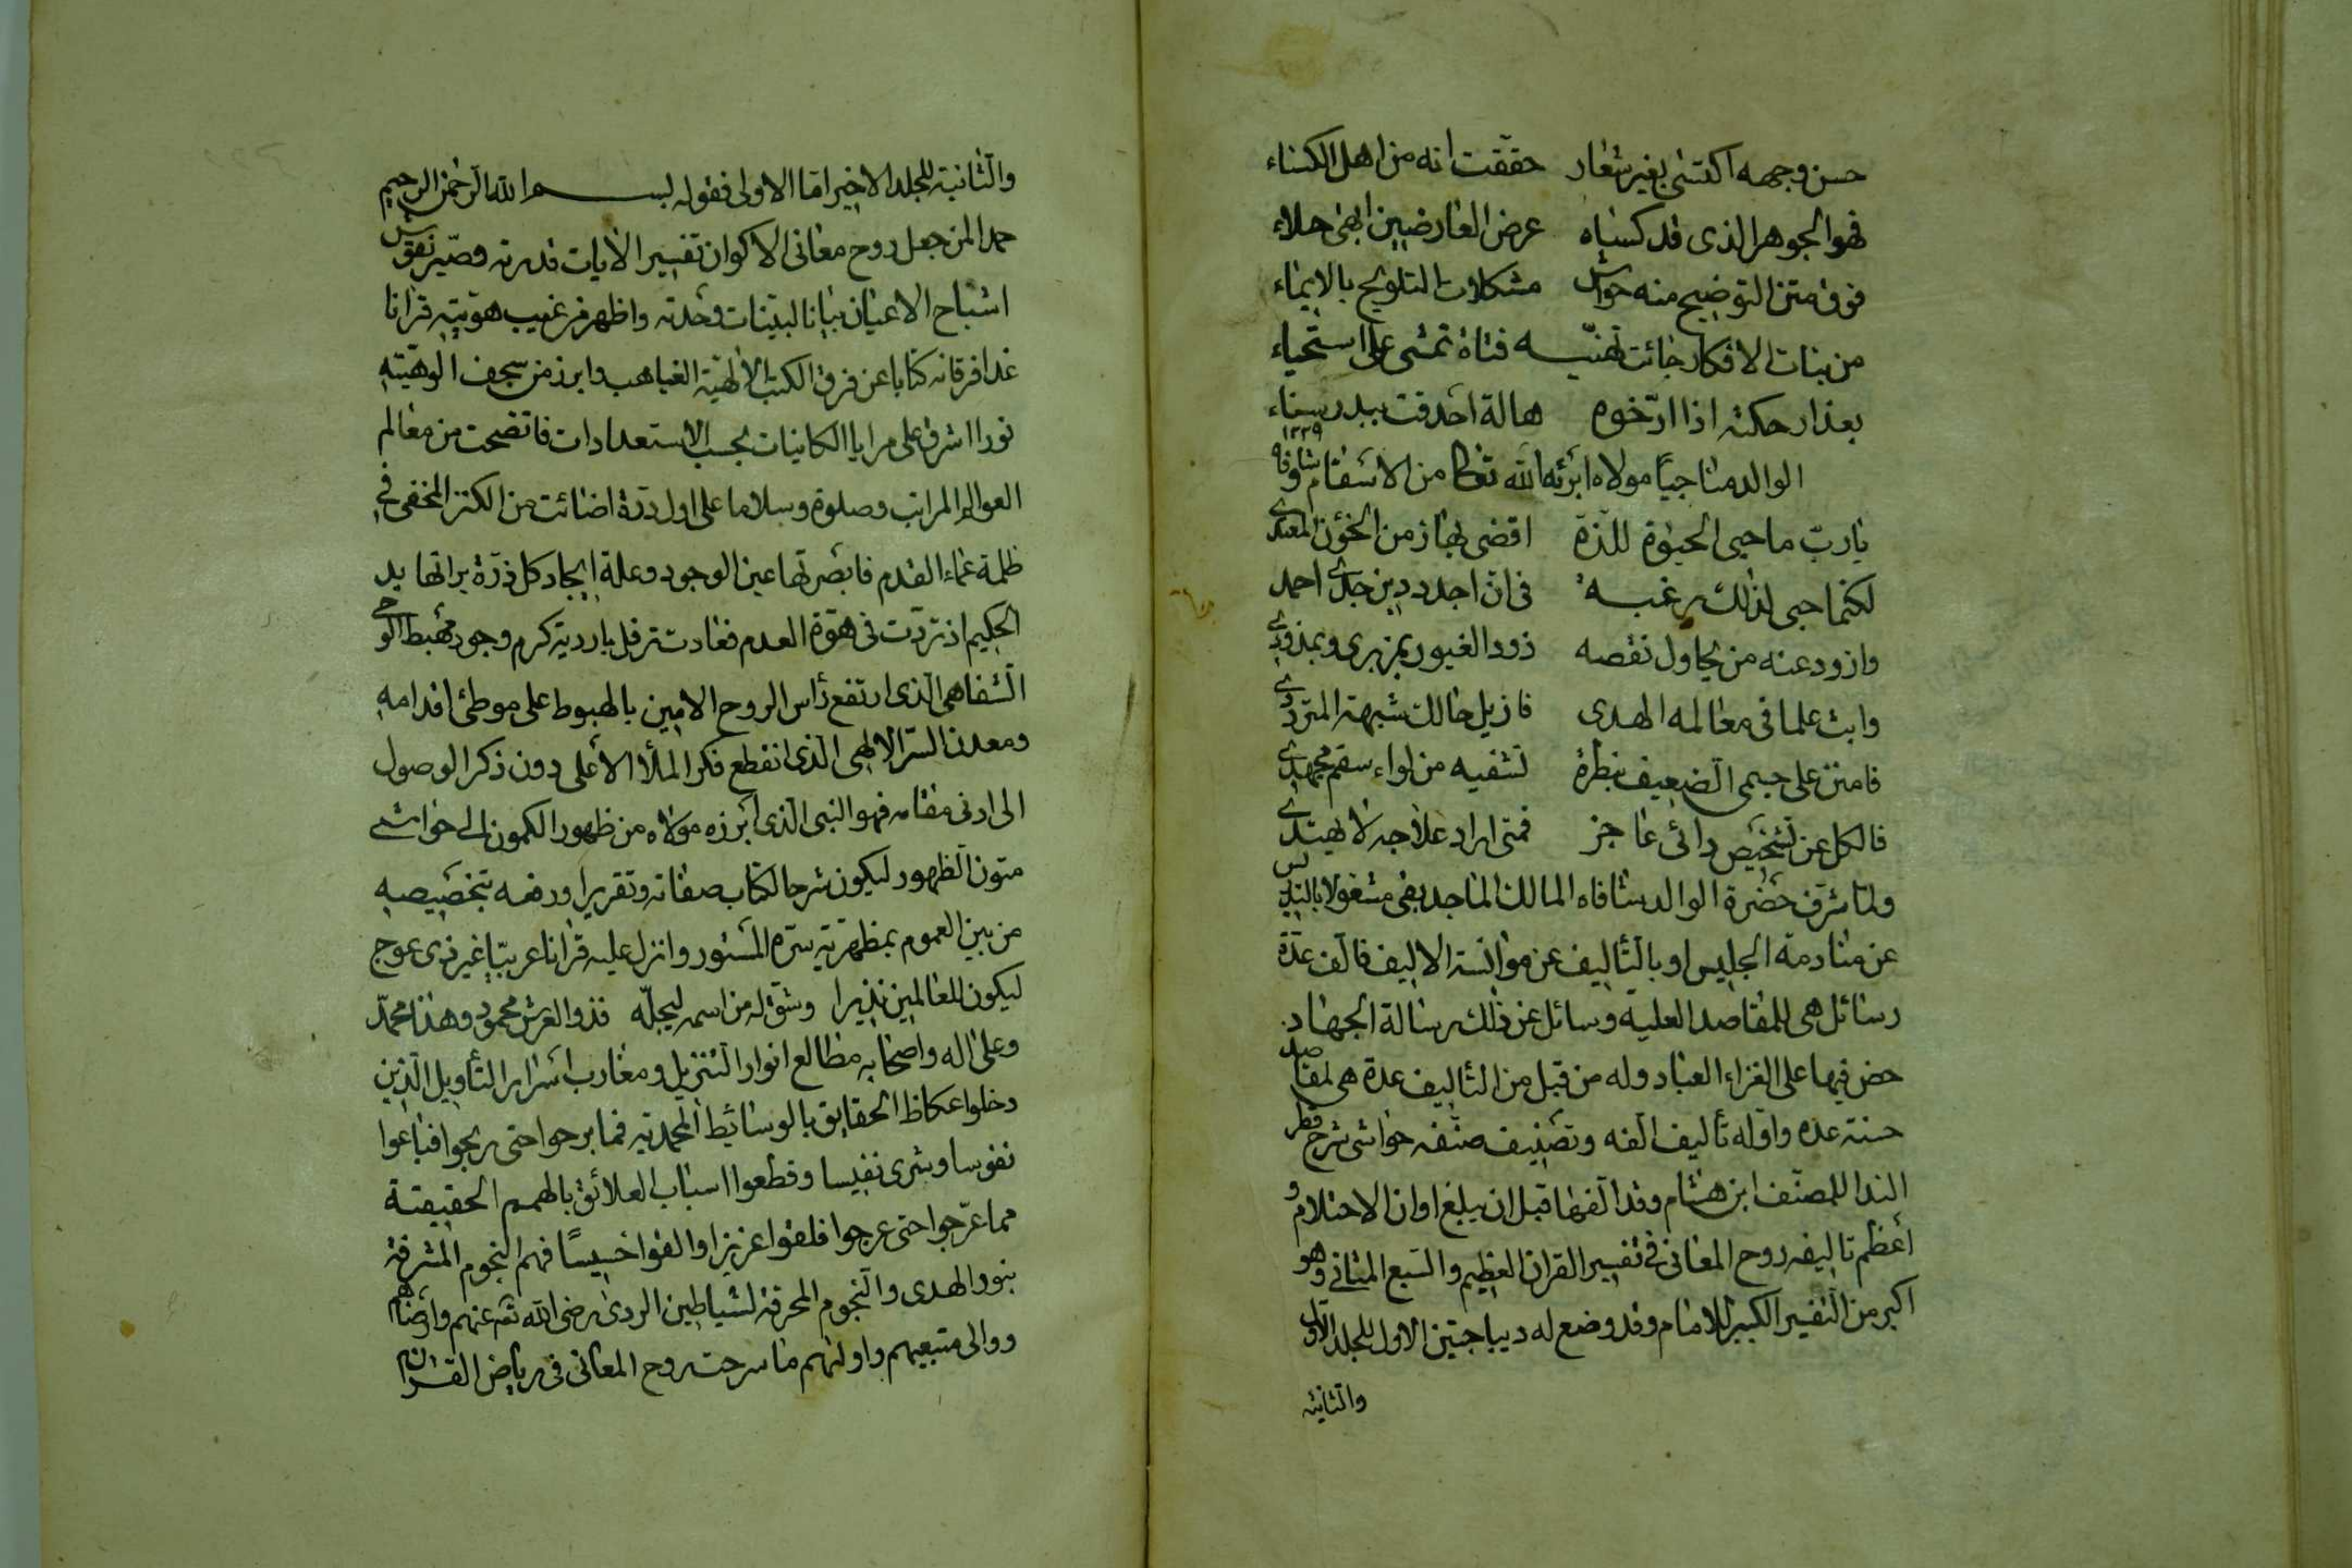 حسن وجهه اكتسى بغير شعار حققت انه من اهل الكساء
فهو الجوهر الذى قد كساه عرض العارضين ابهى حلاء
فوق متن التوضيح منه حواش مشكلات التلويح بالايماء
من بنات الافكار جائت تهنيه فتاة تمشى على استحياء
بعذار حكته اذا ارخوه هالة احدقت ببدر سناء
١٢٢٩
الوالد مناجيا مولاه ابرئه الله تعالى من الاسقام وشافاه
يارب ما حبى الحيوة للذة اقضى بها زمن الخؤن المعتدى
لكنما حبى لذلك رغبة فى ان اجدد دين جدى احمد
واذود عنه من يحاول نقصه ذود الغيور بمزبرى وبمذودى
وابث علما فى معالمه الهدى فازيل حالك شبهة المتردد
فامنن على جسمى الضعيف بنظرة تشفيه من لواء سقم مجهد
فالكل عن تشخيص دائى عاجز فمتى اراد علاجه لا يهتدى
ولما شرف حضرة الوالد شافاه المالك الماجد بقى مشغولا بالتدريس
عن منادمة الجليس او بالتأليف عن موانسة الاليف فالف عدة
رسائل هى للمقاصد العلية وسائل عن ذلك رسالة الجهاد
حض فيها على الغزاء العباد وله من قبل من التأليف عدة هى لمقاصد
حسنة عده واوله تأليف الفه وتصنيف صنفه حواشى شرح قطر
الندا للمصنف ابن هشام وقد الفها قبل ان يبلغ اوان الاحتلام و
أعظم تاليفه روح المعانى فى تفسير القران العظيم والسبع المثانى وهو
اكبر من التفسير الكبير للامام وقد وضع له ديباجتين الاول للجلد الاول
والثانية
والثانية للجلد الاخير اما الاولى فقوله بسم الله الرحمن الرحيم
حمدا لمن جعل روح معانى الاكوان تفسير الايات قدرته وصير نقوش
اشباح الاعيان بيانا لبينات وحدته واظهر من غيب هويته قرانا
غدا فرقانه كتابا عن فرق الكتب الالهية الغياهب وابرز من سجف الوهيته
نورا اشرق على مرايا الكاينات بحسب الاستعدادات فاتضحت من معالم
العوالم المراتب وصلوة وسلاما على اول درة اضائت من الكنز المخفى فى
ظلمة عماء القدم فابصرتها عين الوجود وعلة ايجاد كل ذرة براتها يد
الحكيم اذ تردت فى هوة العدم فعادت ترفل باردية كرم وجود مهبط الوحى
الشفاهى الذى ارتفع رأس الروح الامين بالهبوط على موطئ اقدامه
ومعدن السر الالهى الذى انقطع فكر الملأ الأعلى دون ذكر الوصول
الى ادنى مقامه فهو النبى الذى ابرزه مولاه من ظهور الكمون الى حواشى
متون الظهور ليكون شرحا لكتاب صفاته وتقريرا ورفعه بتخصيصه
من بين العموم بمظهرية سره المستور وانزل عليه قرانا عربيا غير ذى عوج
ليكون للعالمين نذيرا وشق له من اسمه ليجله فذو العرش محمود وهذا محمد
وعلى اله واصحابه مطالع انوار التنزيل ومغارب اسرار التأويل الذين
دخلوا عكاظ الحقايق بالوسائط المحمدية فما برحوا حتى ربحوا فباعوا
نفوسا وشرى نفيسا وقطعوا اسباب العلائق بالهمم الحقيقية
مما عرجوا حتى عرجوا فلقوا عزيزا والقوا خسيسا فهم النجوم المشرقة
بنور الهدى والنجوم المحرقة لشياطين الردى رضى الله تع عنهم وارضاهم
ووالى متبعيهم واولئهم ما سرحت روح المعانى فى رياض القران